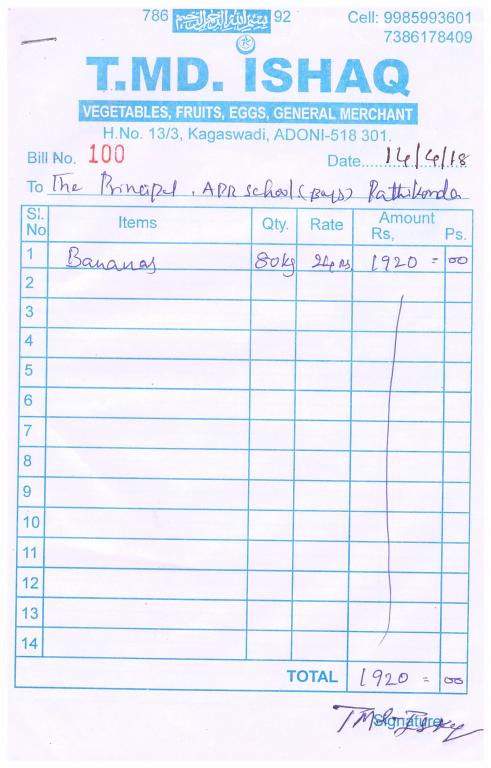 786 بسم الله الرحمن الرحيم 92
Cell: 9985993601
7386178409
T.MD. ISHAQ
VEGETABLES, FRUITS, EGGS, GENERAL MERCHANT
H.No. 13/3, Kagaswadi, ADONI-518 301.
Bill No. 100 Date....14/4/18
To The Principal, APR School (Boys) Pathikonda
Sl. No Items Qty. Rate Amount Rs, Ps.
1 Bananas 80kg 24 Rs 1920 = 00
2
3
4
5
6
7
8
9
10
11
12
13
14
TOTAL 1920 = 00
Signature